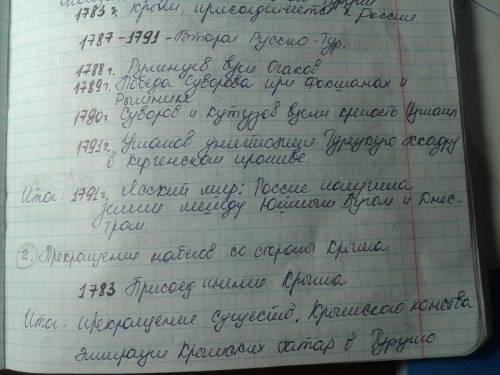 1783 г. Крым присоединяется к России.
1787-1791 - Вторая Русско-Тур.
1788 г. Румянцев взял Очаков
1789 г. Победа Суворова при Фокшанах и
Рымнике
1790 г. Суворов и Кутузов взяли крепость Измаил
1791 г. Ушаков уничтожил Турецкую эскадру
в Керченском проливе.
Итог: 1791 г. Ясский мир: Россия получила
земли между Южным Бугом и Днес-
тром.
2. Прекращение набегов со стороны Крыма
1783 Присоединение Крыма
Итог: прекращение существ. Крымского ханства
Эмиграция Крымских татар в Турцию